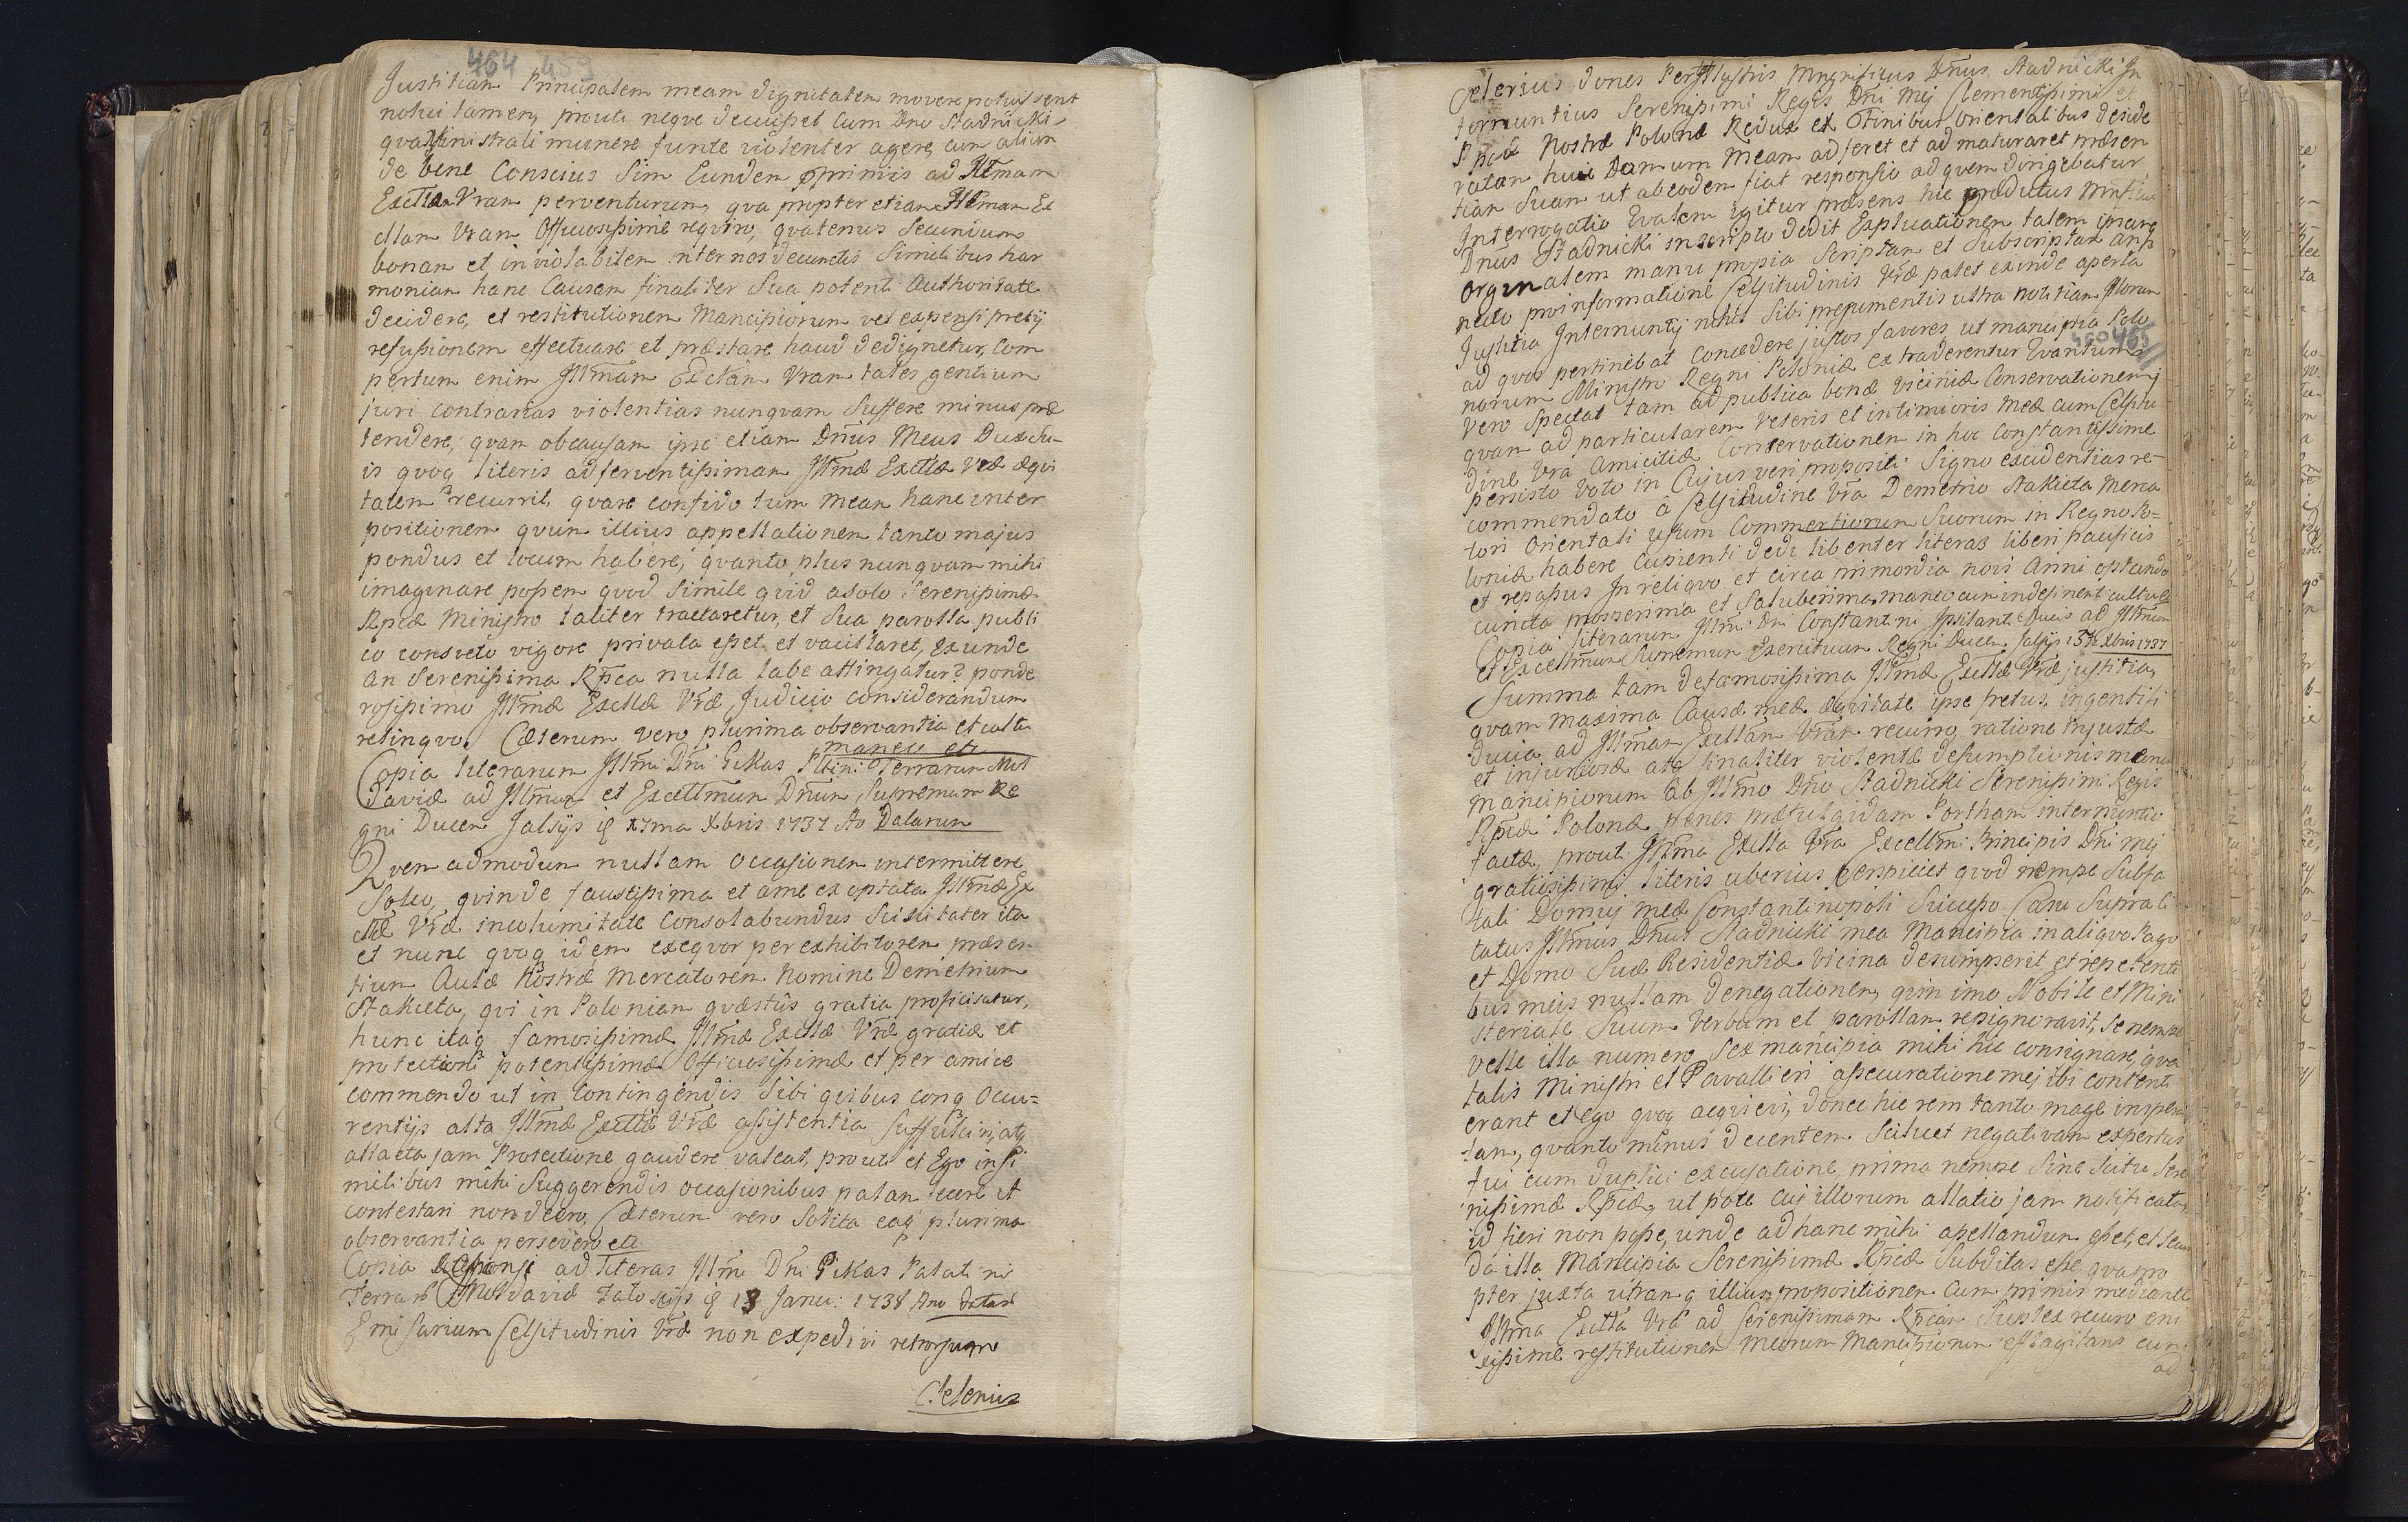 464 459
Justitiam Principalem meam dignitatem movere potuissent
nolui tamen, prouti neqve decuisset cum Dno Stadnicki
qva Ministrali munere functe violenter agere, cum aliun
de bene Conscius Sim Eundem
Exctlam Vram perventurum, qva propter etiam Illmam Ex
ctlam Vram Officiosissime reqviro, qvatenus Secundum
bonam et inviolabilem inter nos decunctis Similibus har
moniam hanc Causam finaliter Sua potenti Authoritate
decidere, et restitutionem Mancipiorum vel expensi pretij
refusionem effectuare et præstare haud dedignetur, Com
pertum enim Illmam Exctlam Vram tales gentium
juri contrarias violentias nunqvam Suffere minus præ
tendere, qvam obcausam ipse etiam Dnus Meus Dux Su-
is qvoq literis adferventissimam Illmæ Exctlæ Vræ æqvi
tatem recurrit, qvare confido tum meam hanc inter
positionem qvun illius appellationem tanto majus
pondus et locum habere, qvanto plus nunqvam mihi
imaginare possem qvod Simile qvid asolo Serenissimæ
Rpcæ Ministro taliter tractaretur, et Sua parolla publi
co consveto vigore privata esset et vacillaret, exunde
an Serenissima Rpca nulla labe attingatur? ponde
rosissimo Illmæ Exctlæ Vræ Judicio considerandum
relinqvo. Cæterum vero plurima observantia et cultu
maneo etc
Copia literarum Illmi Dni Gikas Pltini Terrarum Mol
daviæ ad Illmum et Excellmum Dnum Supremum Re
gni Ducem Jassijs
Xbris 1737 Ao Datarum
Qvem admodum nullam Occasionem intermittere
Soleo, qvinde faustissima et ame ex optata Illmæ Ex
ctlæ Vræ incolumitate Consolabundus Sciscitater ita
et nunc qvoq idem exeqvor per exhibitorem præsen
tium Aulæ Nostræ Mercatorem Nomine Demetrium
Stakieta, qvi in Poloniam qvæstûs gratia proficisatur,
hunc itaq famosissimæ Illmæ Exctlæ Vræ gratiæ et
protectioni potentissimæ Officiosissimæ et per amice
commendo ut in Contingendis Sibi qvibus conq Occu=
rentijs alta Illmæ Exctlæ Vræ assistentia Suffulciri, atq
allacta jam Protectione gaudere valeat, prouti et Ego in Si
milibus mihi Suggerendis occasionibus palam facere et
contestari non deero, Cæterum vero Solita eaq plurima
observantia persevero etc
Copia Responsi ad literas Illmi Dni Gikas Palatini
Terrarum Moldaviæ 13 Janu: 1738 Ano datas
Emissarium Celsitudinis Vræ non expedivi retrorsum
Celerius
Celerius donec Perillustris Mngnificus Dnus Stadnicki In
ternuntius Serenissimi Regis Dni Mej Clementissimi et
Rpcæ Nostræ Polonæ Redux ex Finibus Orientalibus deside
ratam huic Domum Meam adferet et ad maturaret præsen
tiam Suam ut abeodem fiat responsio ad qvem dirigebatur
Interrogatio Evalem Igitur præsens hic prædictus Mnfcus
Dnus Stadnicki inscripto dedit Expluationem talem ipsam
Orginalem manu propia Scriptam et Subscriptam an
necto proinformatione Celsitudinis Vræ patet exinde aperta
Justitia Internuntij nihil Sibi presumentis ultra notitiam Illorum
ad qvos pertinebat Concedere justos favores ut mancipia Polo
460 465
norum Ministro Regni Poloniæ extraderentur Qvantum
Vero Spectat tam ad publica bonæ viciniæ Conservationem
qvam ad particularem Veteris et intimioris Meæ cum Celsitu
dine Vra Amicitiæ Conservationem in hoc Constantissime
persisto Voto in Cujus veri propositi Signo excidentias re-
commendato â Celsitudine Vra Demetrio Stakieta Merca
tori Orientali usum Commertiorum Suorum in Regno Po=
loniæ habere Cupienti dedi libenter literas liberi paussicis
et repassus In reliqvo et circa primordia novi Anni optando
cuncta prosserima et Saluberima, maneo cum indesinenti cultu etc
Copia literarum Illmi Dni Constantini Ipsilanti Ducis ad Illmum
et Excellmum Supremum Exercituum Regni Ducem Jassijs 15ta Xbris 1737
Summa tam defamosissima Illmæ Exctlæ Vræ justitia,
qvam maxima Causæ meæ æqvitate ipse fretus, ingenti fi
ducia ad Illmam Exctlam Vram recurro, ratione Injustæ
et injuriosæ atq finaliter violentæ desumptionis meorum
Mancipiorum ab Illmo Dno Stadnicki Serenissimi Regis
Rpcæ Polonæ penes præfulgidam Portham internuntio
factæ, prouti Illma Exctla Vra Excellmi Principis Dni mej
gratiosissimis literis uberius perspiciet qvod nempe Subfa
tali Domuj meæ Constantinopoli Succeso Casu Suprali
tatus Illmus Dnus Stadnicki mea Mancipia in aliqvo Pago
et Domo Suæ Residentiæ Vicina desumpserit et repetenti
bus meis nullam denegationem, qvin imo Nobile et Mini
steriale Suum Verbum et parollam repignoravit, Se nempe
velle illa numero Sex mancipia mihi hic consignare, qva
talis Ministri et Cavallieri assecuratione mej ibi contenti
erant et Ego qvoq acqvievi, donec hic rem tanto mage insperi
tam, qvanto minus decentem Scilicet negativam expertus
fui cum duplici excusatione, prima nempe Sine Scitu Sere
nissimæ Rpcæ, ut pote cuj illorum allatio jam notificata
id fieri non posse, unde adhanc mihi apellandum esset, et Secun
da illa Mancipia Serenissimæ Rpcæ Subditas esse, qvapro
pter juxta utramq illius propositionem Cum primis mediante
Illma Exctla Vra ad Serenissimam Rpcam Suplex recuro eni
xissime restitutionem Meorum Mancipiorum efflagitans cum
ad